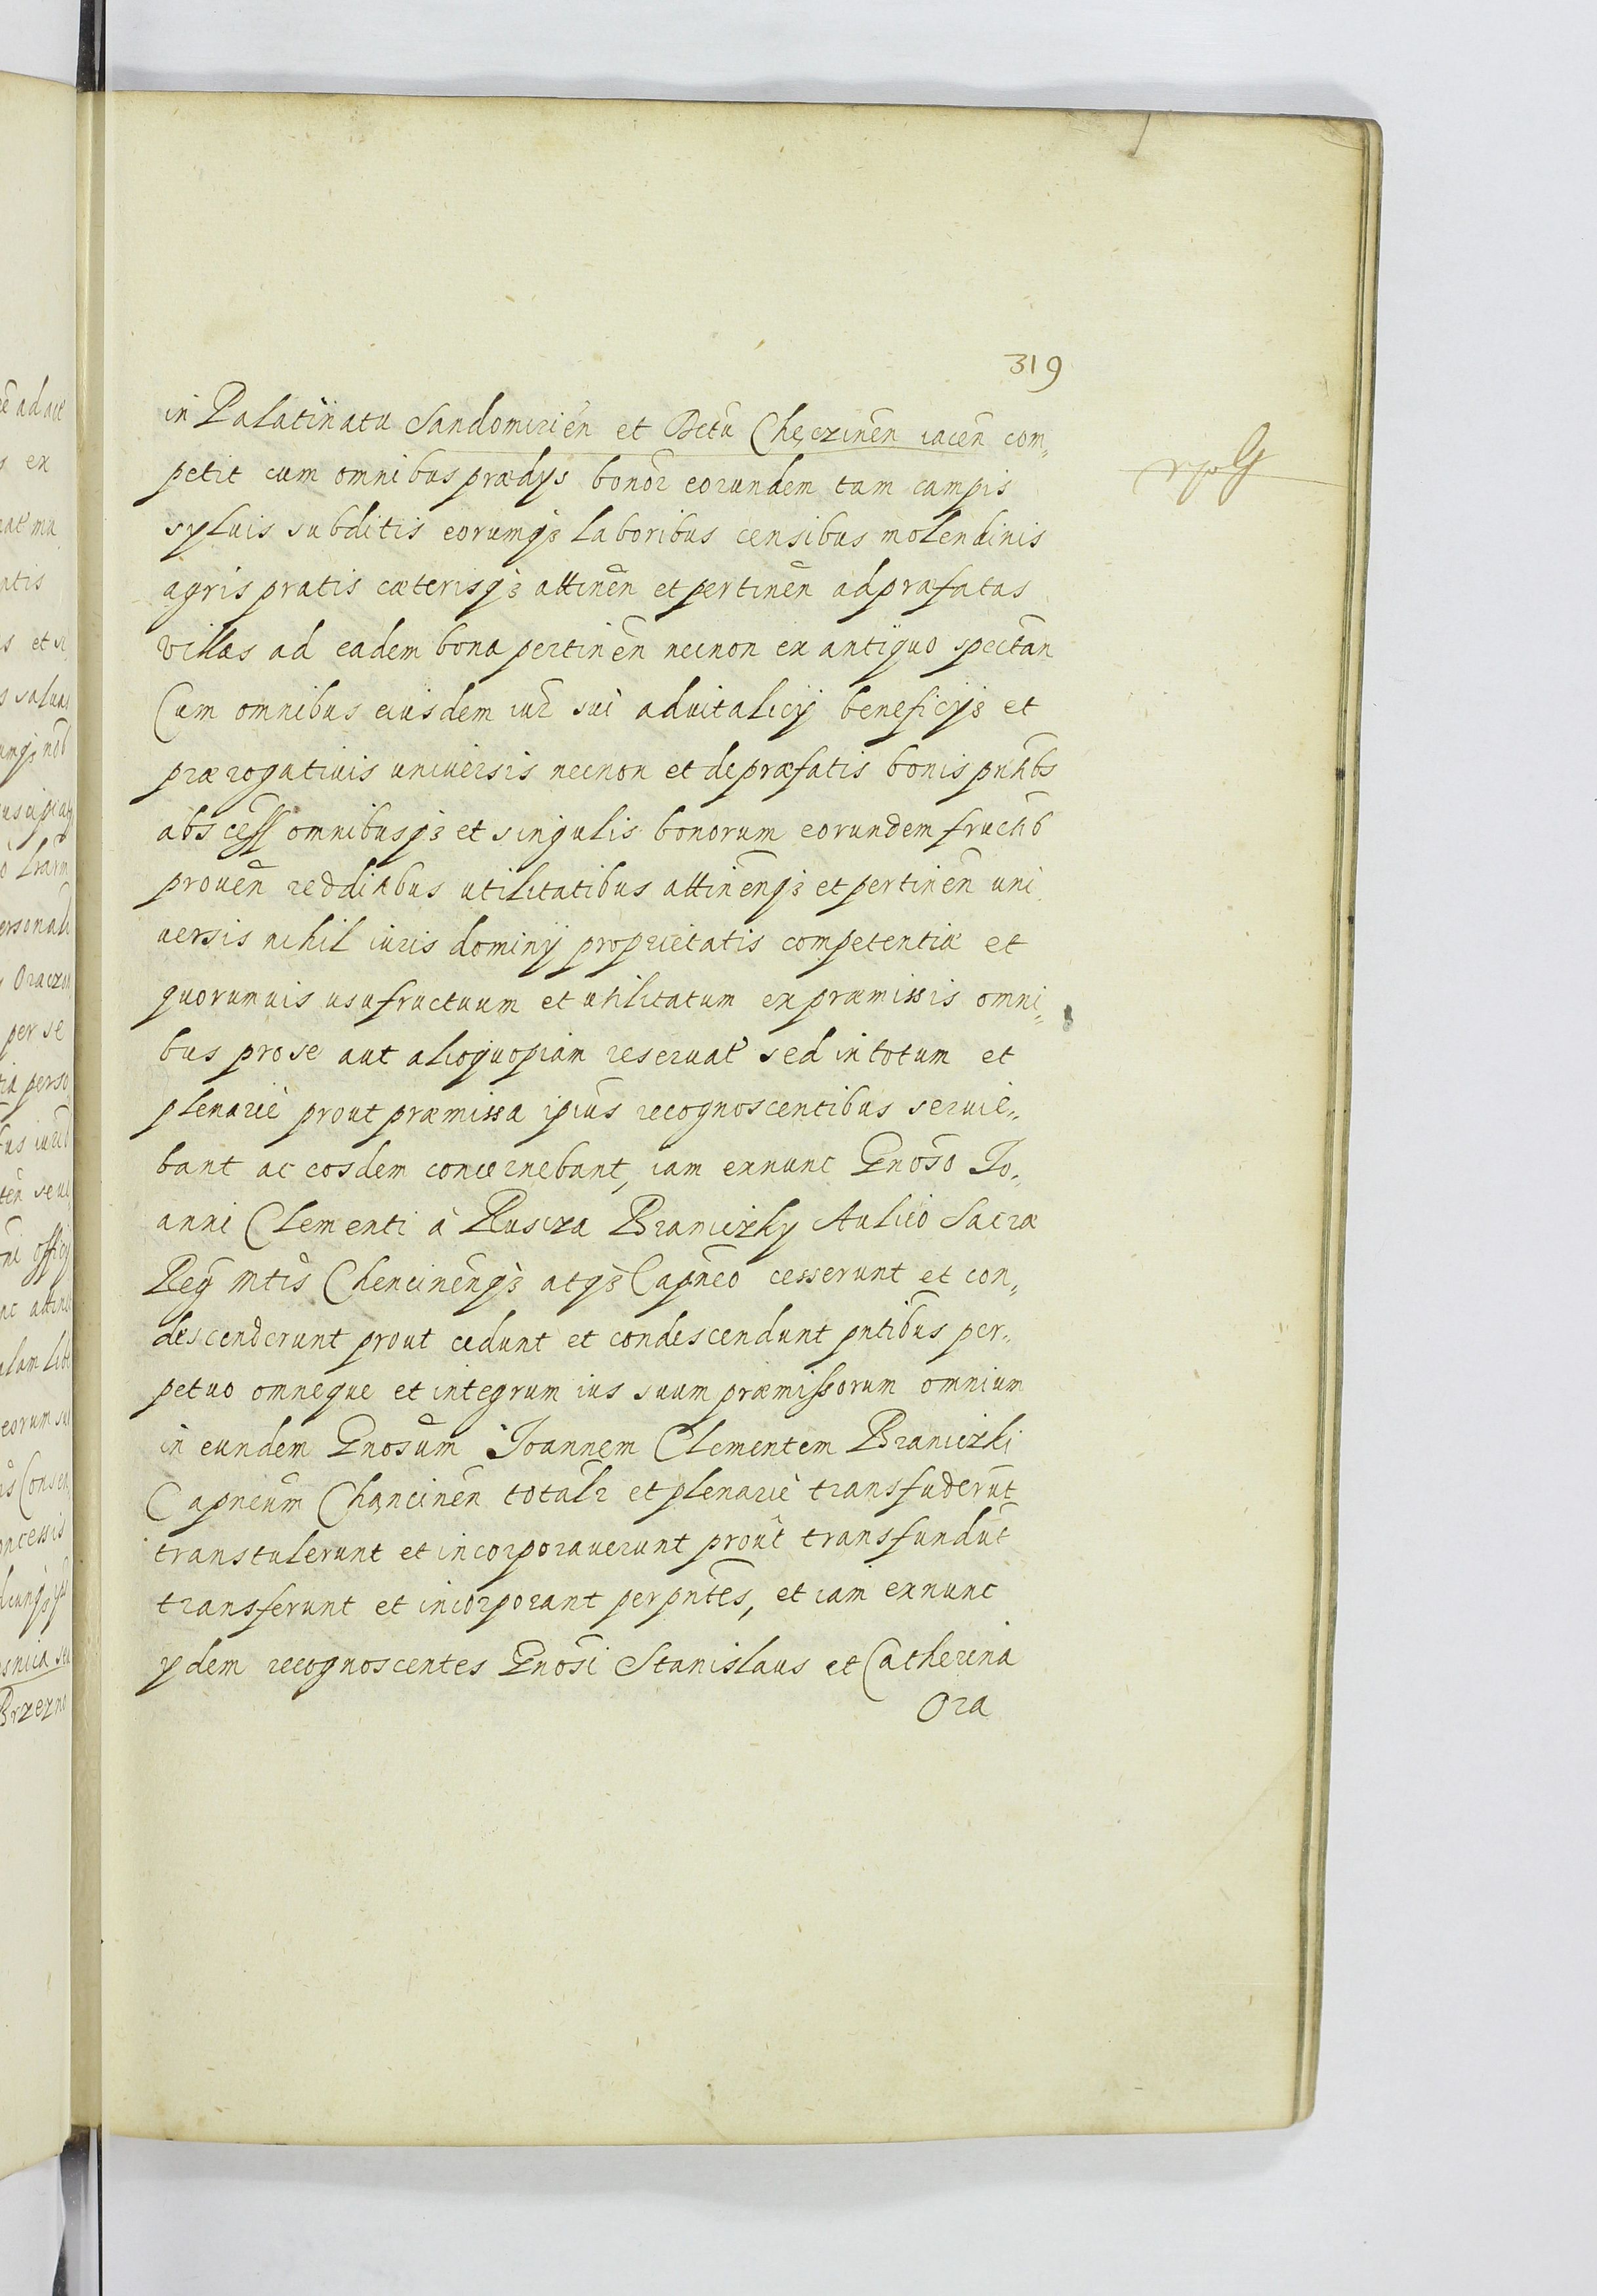 319
in Palatinatu Sandomirien̄ et Dctu Chęczinen̄ iacen̄ com„
petit cum omnibus prædijs bonoꝝ eorundem tam campis
syluis subditis eorumqꝫ laboribus censibus molendinis
agris pratis cæterisqꝫ attinen̄ et pertinen̄ ad præfatas
villas ad eadem bona pertinen̄ necnon ex antiquo spectan̄
Cum omnibus eiusdem iuꝝ sui aduitalicij beneficijs et
prærogatiuis uniuersis necnon et de præfatis bonis pntibs
abscess omnibusqꝫ et singulis bonorum eorundem fructib
prouen̄ redditibus utilitatibus attinen̄qꝫ et pertinen̄ uni
uersis nihil iuris dominij proprietatis competentiæ et
quorumuis usufructuum et utilitatum ex præmissis omni„
bus pro se aut alioquopiam reseruat̄ sed in totum et
plenariè prout præmissa ipius recognoscentibus seruie„
bant ac eosdem concernebant, iam exnunc Gnoso Jo„
anni Clementi à Ruscza Braniczky Aulico Sacræ
Reg Mtis Chencinen̄qꝫ atqꝫ Capneo cesserunt et con„
descenderunt prout cedunt et condescendunt pntibus per„
petuo omneque et integrum ius suum præmissorum omnium
in eundem Gnosum Joannem Clementem Braniczki
Capneum Chancinen̄ totalr et plenariè transfuderut̄
transtulerunt et incorporauerunt prout transfundut̄
transferunt et incorporant per pntes, et iam exnunc
ydem recognoscentes Gnosi Stanislaus et Catherina
Ora